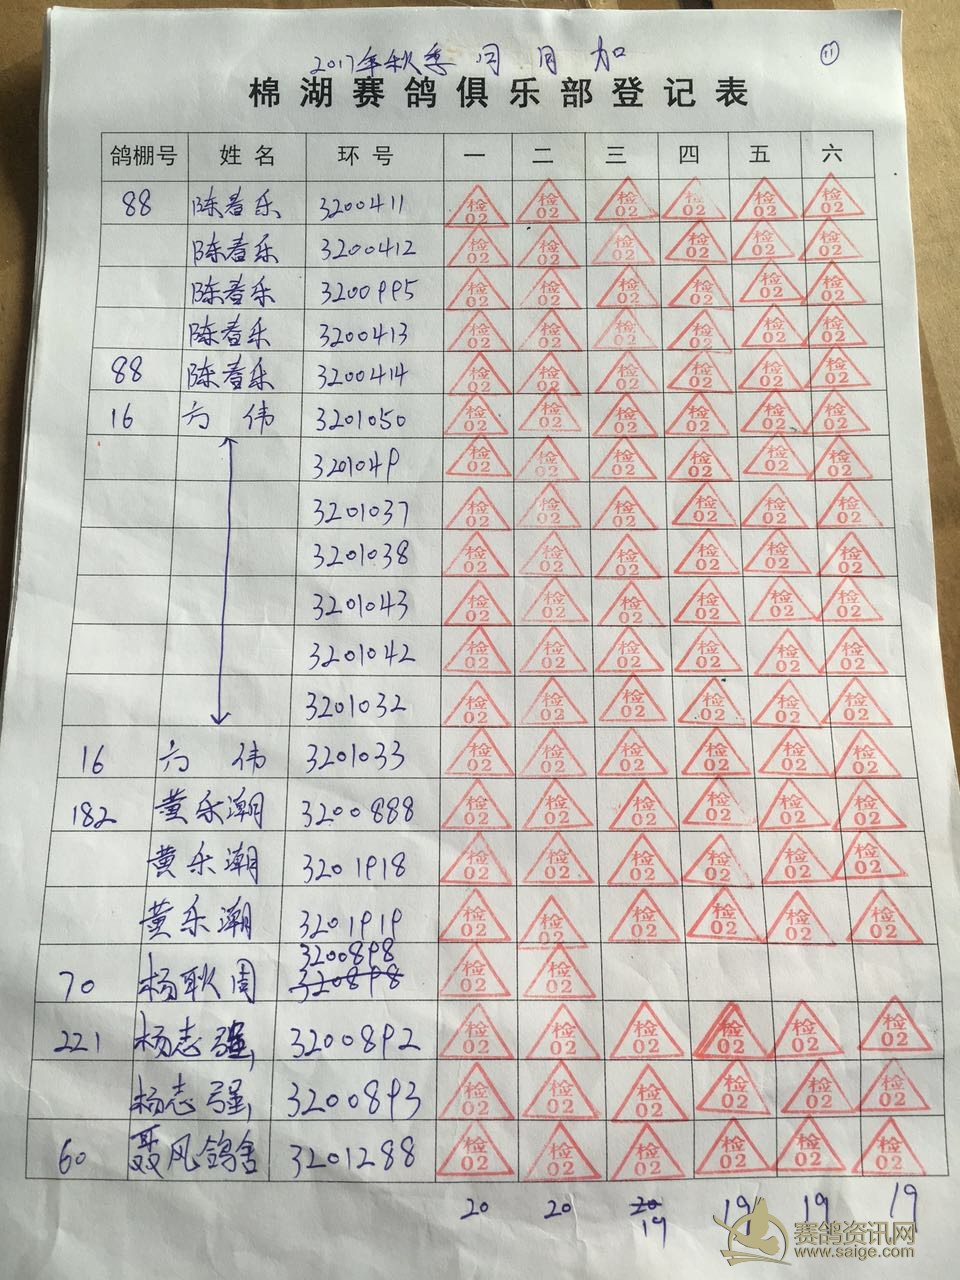 2017年秋季 闵 月 加 ⑪
棉湖赛鸽俱乐部登记表
鸽棚号 姓名 环号 一 二 三 四 五 六
88 陈着乐 3200411 检02 检02 检02 检02 检02 检02
陈着乐 3200412 检02 检02 检02 检02 检02 检02
陈着乐 3200995 检02 检02 检02 检02 检02 检02
陈着乐 3200413 检02 检02 检02 检02 检02 检02
88 陈着乐 3200414 检02 检02 检02 检02 检02 检02
16 方伟 3201050 检02 检02 检02 检02 检02 检02
3201049 检02 检02 检02 检02 检02 检02
3201037 检02 检02 检02 检02 检02 检02
3201038 检02 检02 检02 检02 检02 检02
3201043 检02 检02 检02 检02 检02 检02
3201042 检02 检02 检02 检02 检02 检02
3201032 检02 检02 检02 检02 检02 检02
16 方伟 3201033 检02 检02 检02 检02 检02 检02
182 黄乐潮 3200888 检02 检02 检02 检02 检02 检02
黄乐潮 3201918 检02 检02 检02 检02 检02 检02
黄乐潮 3201919 检02 检02 检02 检02 检02 检02
3200898
70 杨耿周 320898 检02 检02
221 杨志强 3200892 检02 检02 检02 检02 检02 检02
杨志强 3200893 检02 检02 检02 检02 检02 检02
60 聂风鸽舍 3201288 检02 检02 检02 检02 检02 检02
20 20 20 19 19 19
19
赛鸽资讯网
www.saige.com